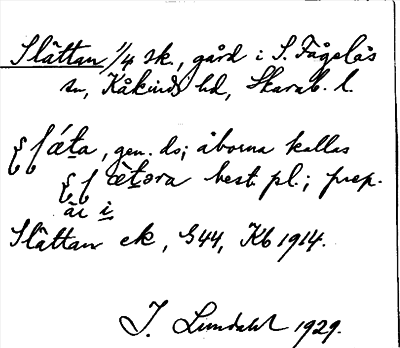 Slättan 1/4 sk., gård i S. Fågelås
sn, Kåkinds hd, Skarab. l.
gen. ds; åborna kallas
best. pl.; prep.
är i
Slättan ek, 1914.
I. Lundahl 1929.